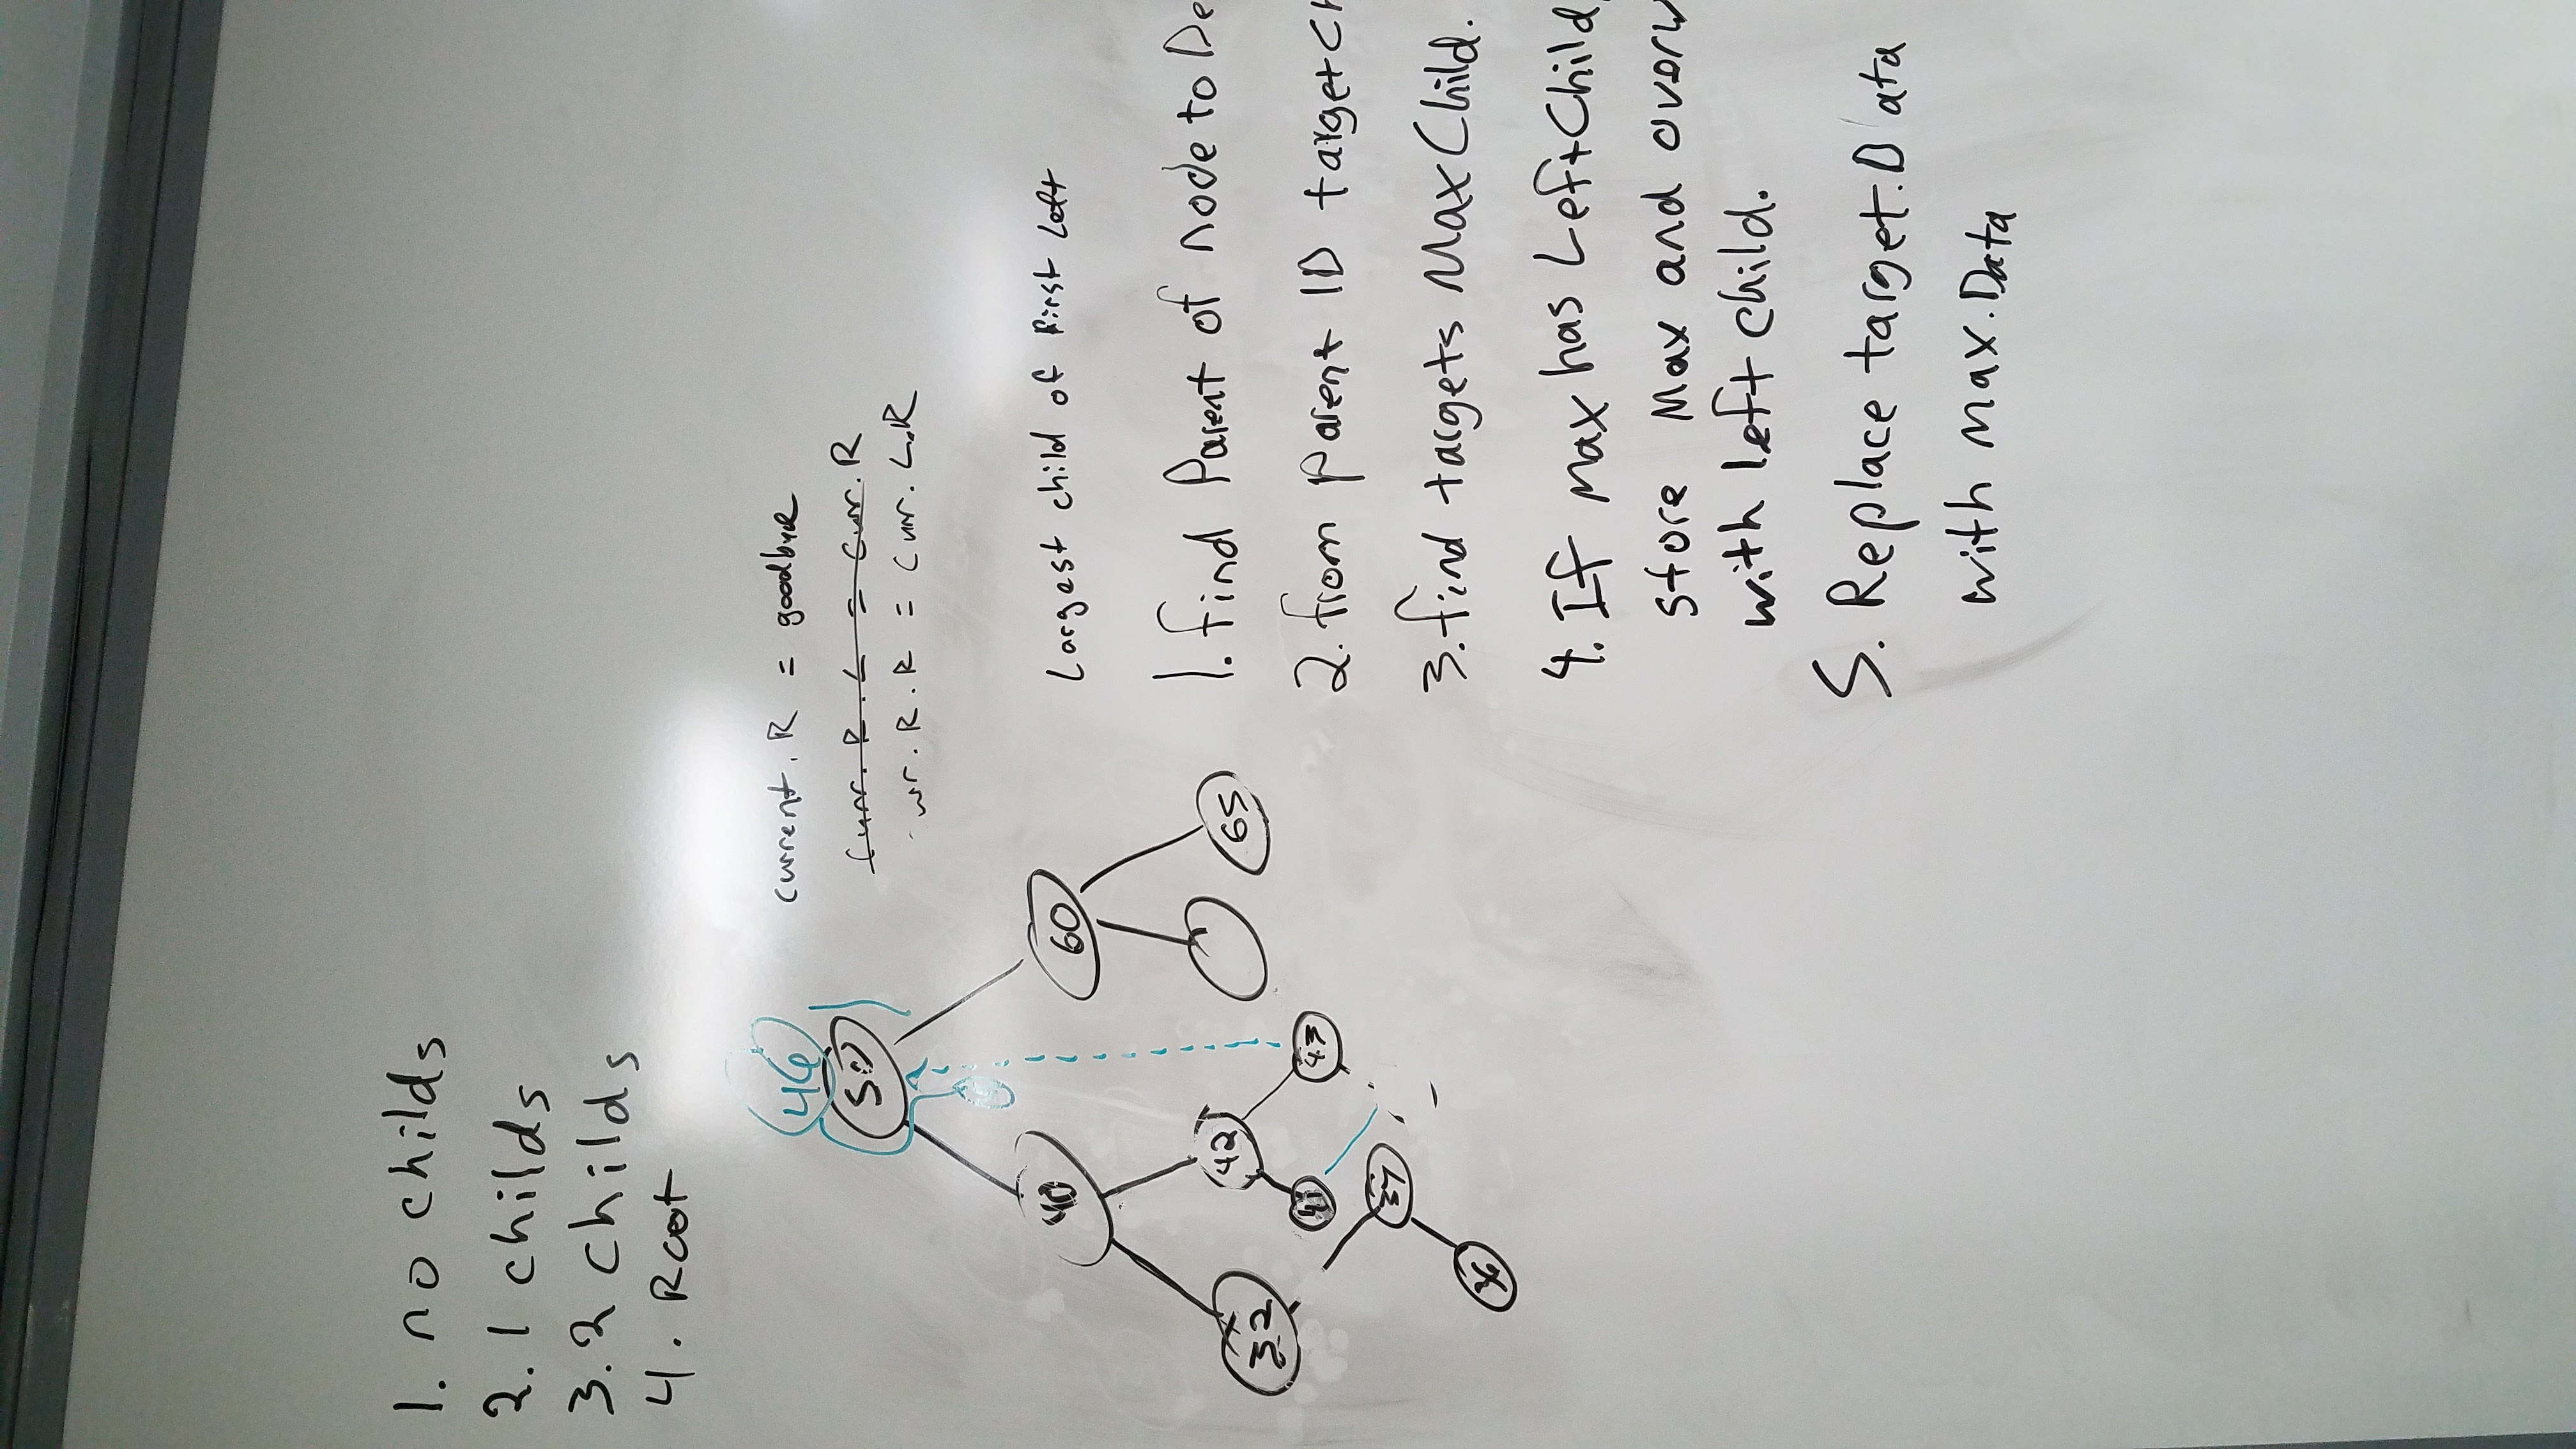 1. no childs
2. 1 childs
3. 2 childs
4. Root
46
50
current. R = goodbye
Curr. R. L = Curr. R
wr. R. R = Curr. L.R
40
60
Largest child of first Left
32
42
65
41
43
37
36
1. find Parent of node to De
2. from parent ID target Ch
3. find targets Max Child.
4. If max has Left Child,
store Max and overw
with left child.
5. Replace target.Data
with max.Data